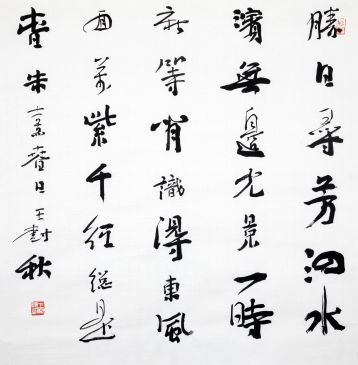 勝日尋芳泗水
濱無邊光景一時
新等閒識得東風
面萬紫千紅總是
春朱熹春日王秋